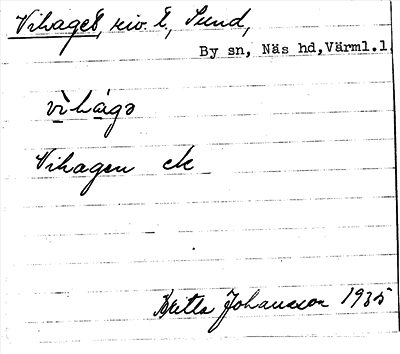 Vihaget, riv. l., Sund,
By sn, Näs hd, Värml.l.
vìhágə
Vihagen ek
Britta Johansson 1935